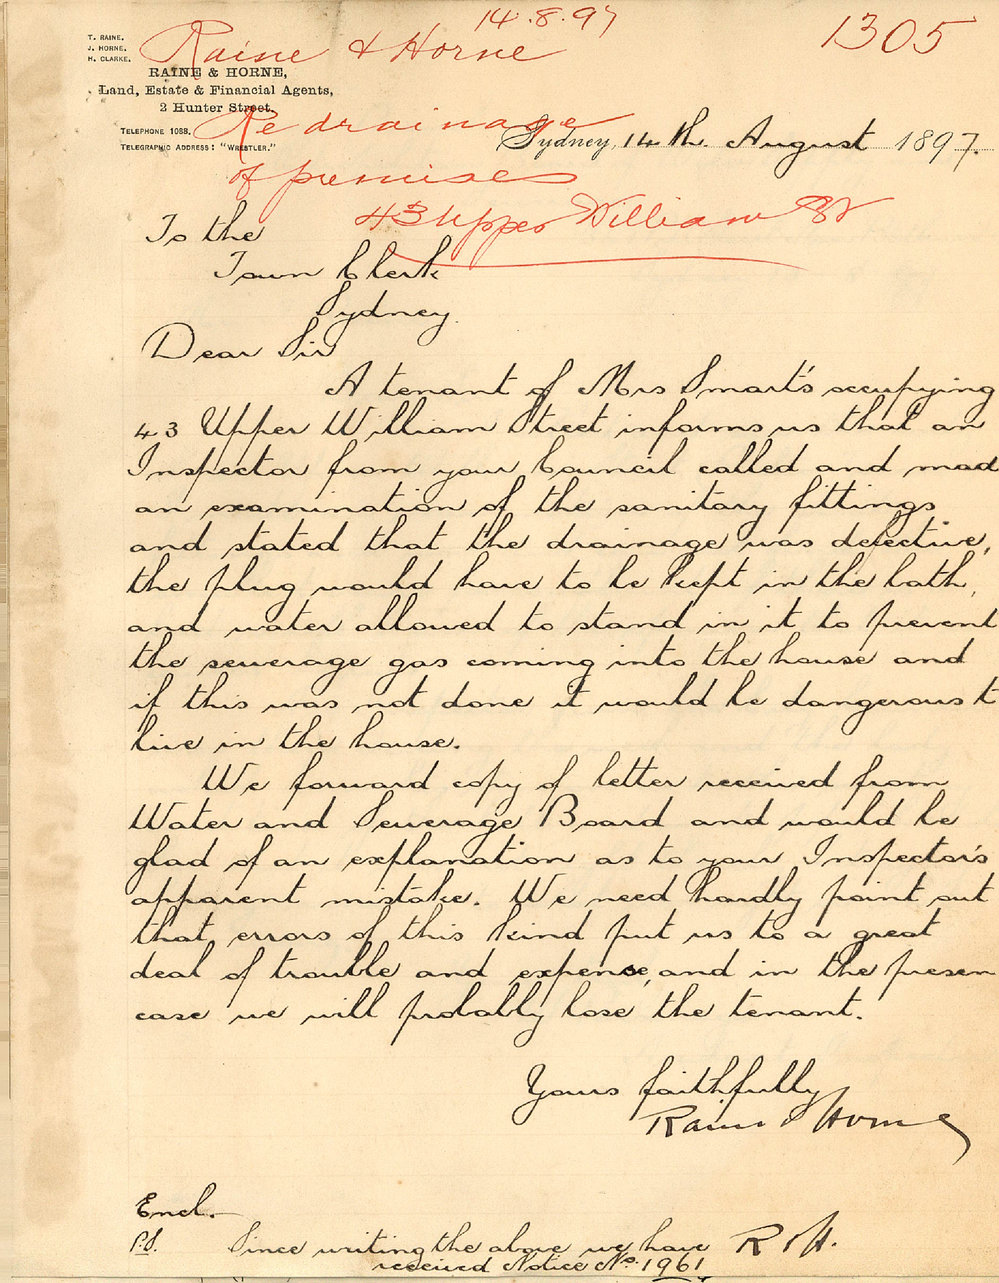 14.8.97
1305
T. RAINE.
J. HORNE.
H. CLARKE.
Raine & Horne
RAINE & HORNE,
Land, Estate & Financial Agents,
2 Hunter Street.
TELEPHONE 1088.
TELEGRAPHIC ADDRESS: "WRESTLER."
Re drainage
of premises
43 Upper William St
Sydney, 14th. August 1897.
To the
Town Clerk
Sydney.
Dear Sir
A tenant of Mrs Smart's occupying
43 Upper William Street informs us that an
Inspector from your Council called and mad
an examination of the sanitary fittings
and stated that the drainage was defective,
the plug would have to be kept in the bath,
and water allowed to stand in it to prevent
the sewerage gas coming into the house and
if this was not done it would be dangerous t
live in the house.
We forward copy of letter received from
Water and Sewerage Board and would be
glad of an explanation as to your Inspector's
apparent mistake. We need hardly point out
that errors of this kind put us to a great
deal of trouble and expense, and in the presen
case we will probably lose the tenant.
Yours faithfully
Raine & Horne
Encl.
P.S. Since writing the above we have R & H.
received Notice No. 1961